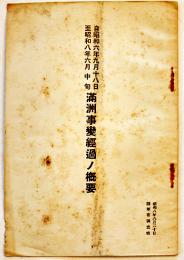 自昭和六年九月十八日
至昭和八年六月中旬
満洲事變經過ノ概要
昭和八年八月三十日
陸軍省調査班